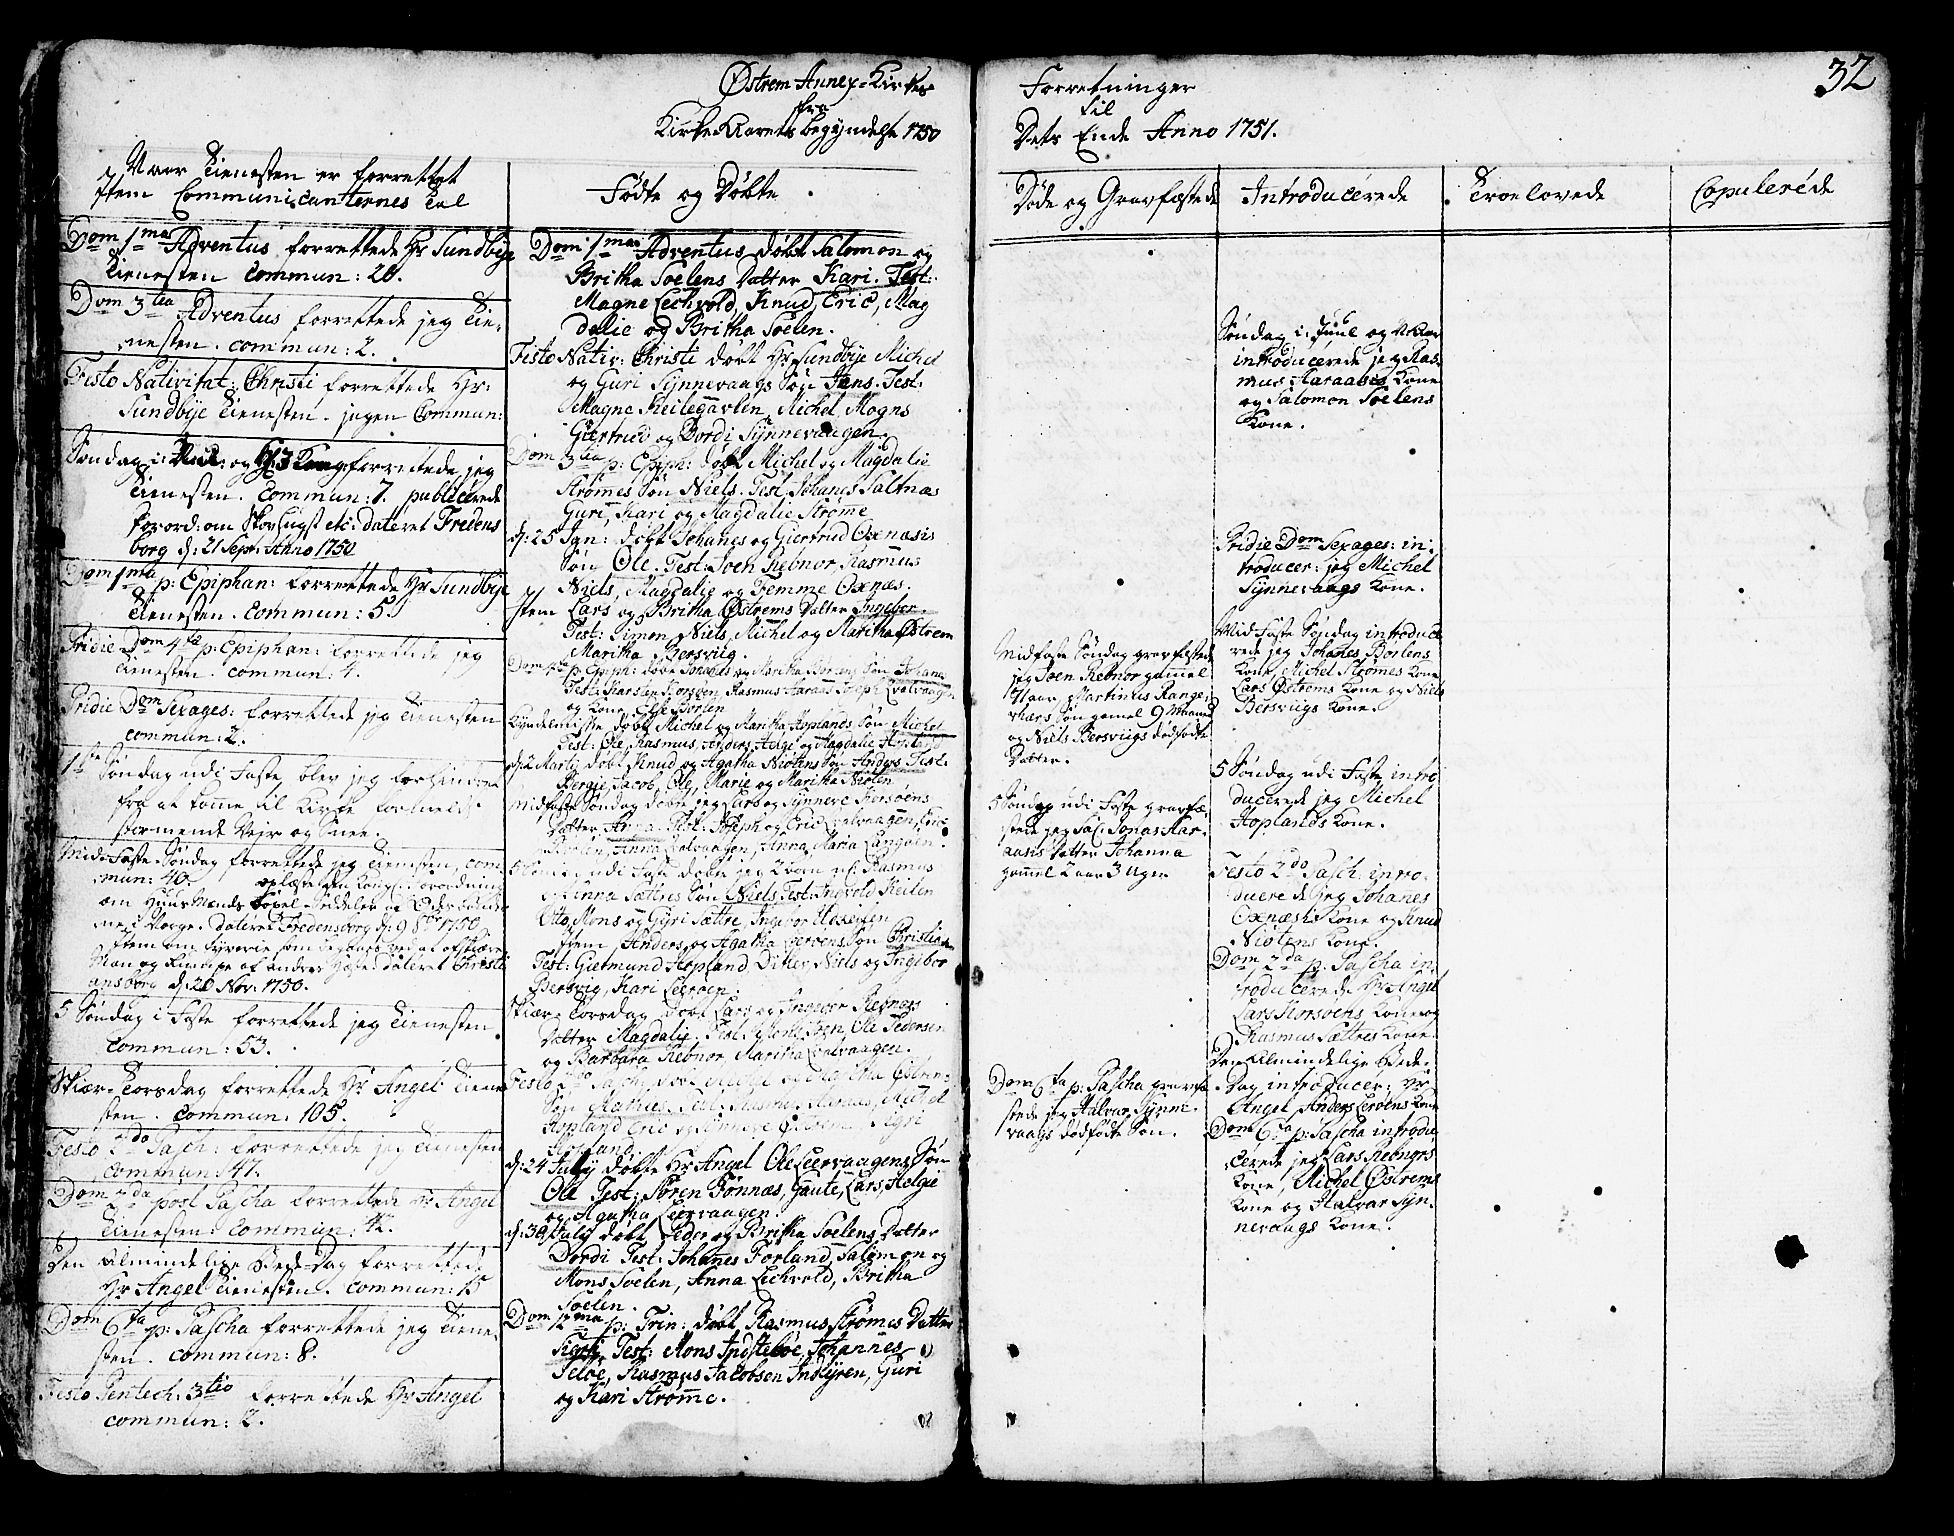 Østrem Annex-Kirkes
fra
Kirke-Aarets begyndelse 1750
Naar Tienesten er forrettet
Item Communicanternes Tal
Dom 1ma Adventus forrettede Hr Sundbye
Tienesten commun: 20.
Dom 3tia Adventus forrettede jeg Tie-
nesten. commun: 2.
Festo Nativitat: Christi forrettede Hr:
Sundbye Tienesten. jngen Commun:
Søndag i: og H: 3 Kong: forrettede jeg
Tienesten. commun: 7. publicerede
forord: om Skov etc: dateret Fredens
borg d: 21 Sept: Anno 1750
Dom 1ma p: Epiphan: forrettede Hr Sundbye
Tienesten. commun: 5.
Pridie Dom 4ta p: Epiphan: forrettede jeg
Tienesten. commun: 4.
Pridie Dom Sexages: forrettede jeg Tienesten
commun: 2.
1ste Søndag udi Faste blev jeg forhindret
fra at komme til Kirke formedelst
stormende Vejr og Snee.
Mid-Faste-Søndag forrettede jeg Tienesten, com
mun: 40. oplæste den Kongl: Forordning
om Huus Mænds
Norge. dateret Fredensborg d: 9 8br 1750
Item om
af andres dateret Christi
ansborg d: 20 Nov: 1750.
5 Søndag i Faste forrettede jeg Tienesten
commun: 53.
Skiær-Torsdag forrettede Hr Angel Tiene
sten. commun: 105.
Festo 2do Pasch: forrettede jeg Tienesten
commun: 47.
Dom 2da post Pascha forrettede Hr Angel
Tienesten commun:
Den Almindelige Bede-Dag forrettede
Hr Angel Tienesten. commun: 15
Dom 6ta p: Pascha forrettede jeg Tiene-
sten. commun: 8.
Festo Pentech: 3tio forrettede Hr Angel
commun: 2.
Fødte og Døbte
Dom: 1ma Adventus døbt Salomon og
Britha Soelens Datter Kari. Test:
Magne Lechvold, Knud, Eric, Mag
dalie og Britha Soelen.
Festo Nativ: Christi døbt Hr Sundbye Michel
og Guri Synnevaags Søn Jens. Test:
Magne Keilegavlen, Michel Mogns
Giertrud og Dordi Synnevaagen.
Dom 3tia p: Epiph: døbt Michel og Magdalie
Strømes Søn Niels. Test: Johanes Saltnæs
Guri, Kari og Magdalie Strøme
d: 25 Jan: døbt Johanes og Giertrud Oxnæsis
Søn Ole. Test: Joen Rebnor, Rasmus
Niels, Magdalie og Femme Oxnæs.
Item Lars og Britha Østrems Datter Ingebor.
Test: Simon, Niels, Michel og Maritha Østrem
Maritha Bersviig.
Dom 4ta p: Epiph: døbt Johanes og Maritha Børlens Søn Johanes
Test: Karsten Korsøen, Rasmus Aaraas, Joseph Qvalvaagen
og Kone, Else Børlen
Kyndelmisse døbt Michel og Maritha Hoplands Søn Michel
Test: Ole, Rasmus, Anders, Helge og Magdalie Hopland
d: 2 Martij døbt Knud og Agatha Niøtens Søn Anders Test:
Børgie, Jacob, Ole, Marie og Maritha Niøten
Midfaste Søndag døbte jeg Lars og Synneve Korsøens
Datter Anna. Test: Joseph og Eric Qvalvaagen,
Anna Qvalvaagen, Anna Maria Langøen.
5 Søndag udi Faste døbte jeg 2 børn nl: Rasmus
og Anna Sættres Søn Niels Test: Ingvold Keilen
Otto, Mons og Guri Sættre, Ingebor
Item Anders og Agatha Leerøens Søn Christian
Test: Gietmund Hopland, Niels og Ingebor
Bersviig, Kari Leerøen.
Skiær-Torsdag døbt Lars og Ingebor Rebnors
Datter Magdalie. Test: Ole Pedersen
og Barbara Rebnor, Maritha Qvalvaagen.
Festo 2do Pasch: døbt Michel og Østrems
Søn Mathies. Test: Rasmus, Michel
Hopland, Eric og Synneve Østrem, Sigri
Hopland.
d: 24 July døbte Hr Angel Ole Leervaagens Søn
Ole Test: Søren Rønnæs, Gaute, Lars, Helgie
og Agatha Leervaagen.
d: 30 July døbt Peder og Britha Soelens Datter
Dordi Test: Johanes Forland, Salomon og
Mons Soelen, Anna Lechvold, Britha
Soelen.
Dom 12ma p: Trin: døbt Rasmus Strømes Datter
Sigri. Test: Mons Indstebøe, Johannes
Teløe, Rasmus Jacobsen Indtyren, Guri
og Kari Strømme.
32
Forretninger
til
Dets Ende Anno 1751.
Døde og Gravfæstede
Midfaste Søndag gravfæstede
jeg Joen Rebnor gammel
Aar, Martinus Range-
vhærs Søn gamel 9 Maaned
og Niels Bersviigs dødfødte
Datter.
5 Søndag udi Faste gravfæ-
stede jeg Sal: Jonas Aar-
aasis Datter Johanna
gammel 2 aar 3 Uger
Dom 6ta p: Pascha gravfæ
stede jeg Halvar Synne-
vaags dødfødte Søn.
Introducerede
Søndag i: Juul og NAar
introducerede jeg Ras-
mus Aaraasis Kone
og Salomon Soelens
Kone.
Pridie Dom Sexages: in-
troducer: jeg Michel
Synnevaags Kone.
Mid Faste Søndag introduce
rede jeg Johanes Børlens
Kone, Michel Strømes Kone
Lars Østrems Kone og Niels
Bersviigs Kone.
5 Søndag udi Faste intro
ducerede jeg Michel
Hoplands Kone.
Festo 2do Pasch: intro-
ducerede jeg Johanes
Oxnæsis Kone og Knud
Niøtens Kone.
Dom 2da p: Pascha in-
troducerede Hr Angel
Lars Korsøens Kone og
Rasmus Sættres Kone
Den Almindelige Bede-
Dag introducer: Hr
Angel Anders Lerøens Kone
Dom 6ta p: Pascha introdu-
cerede jeg Lars Rebnors
Kone, Michel Østrems
Kone og Halvar Syn-
nevaags Kone.
Troelovede
Copulerede